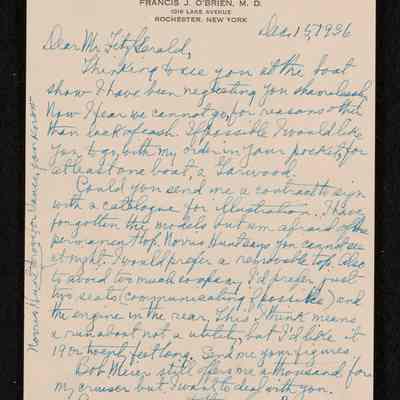 FRANCIS J. O'BRIEN, M. D.
1016 LAKE AVENUE
ROCHESTER, NEW YORK
Dec 15, 1936
Dear Mr Fitz Gerald,
Thinking to see you at the boat
show I have been neglecting you shamelessly.
Now I fear we cannot go, for reasons other
than lack of cash. If possible I would like
you to go with my order in your pocket, for
at least one boat, a Garwood.
Could you send me a contract to sign
with a catalogue for illustration. I have
forgotten the models but am afraid of the
permanent top. Norris Hunt says you cannot see
at night. I would prefer a removable top. Also
to avoid too much copsay, I'd prefer just
two seats (communicating if possible) and
the engine in the rear. This I think means
a runabout not a utility, but I'd like it
19 or twenty feet long. Send me your figures
Bob Meier still offers me a thousand for
my cruiser but I want to deal with you.
Norris Hunt
you know